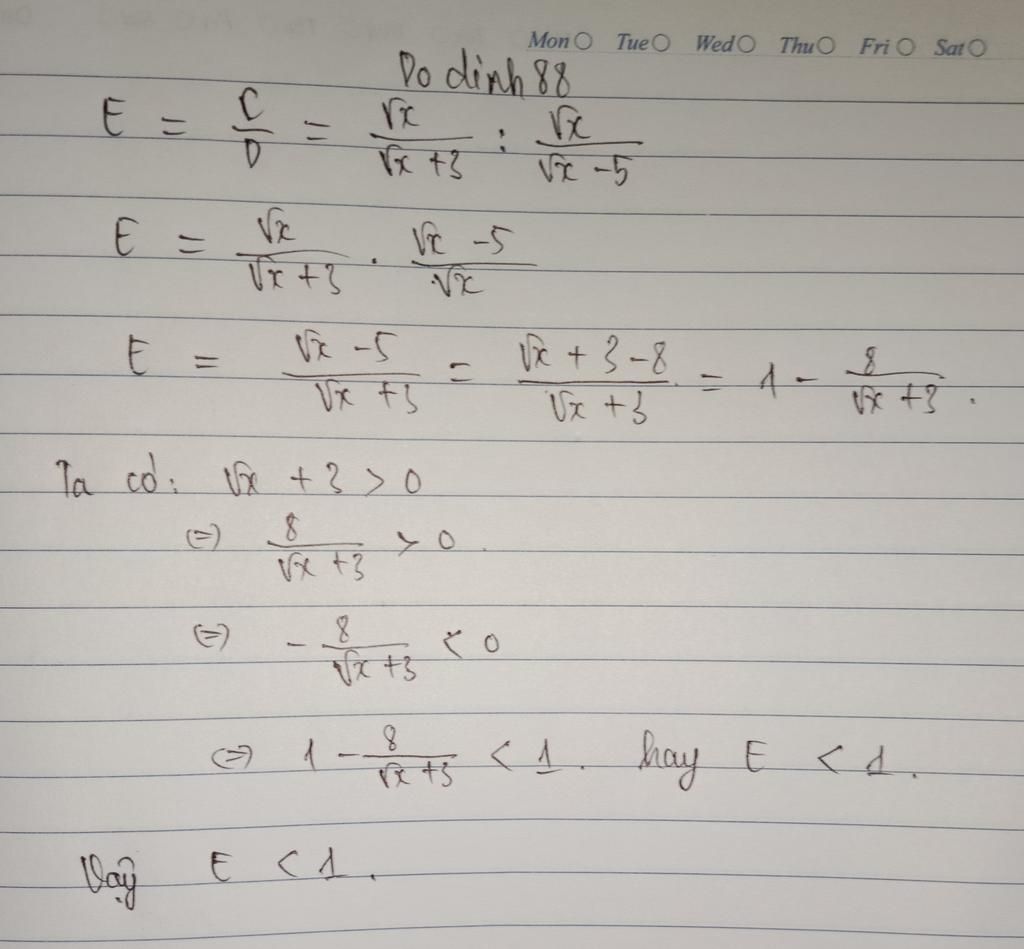 Mon Tue Wed Thu Fri Sat
Do dinh 88
E = C/D = √x/(√x +3) : √x/(√x -5)
E = √x/(√x +3) . (√x -5)/√x
E = (√x -5)/(√x +3) = (√x + 3 -8)/(√x +3) = 1 - 8/(√x +3).
Ta có: √x + 3 > 0
(=) 8/(√x +3) > 0.
(=) - 8/(√x +3) < 0
(=) 1 - 8/(√x +3) < 1. hay E < 1.
Vậy E < 1.